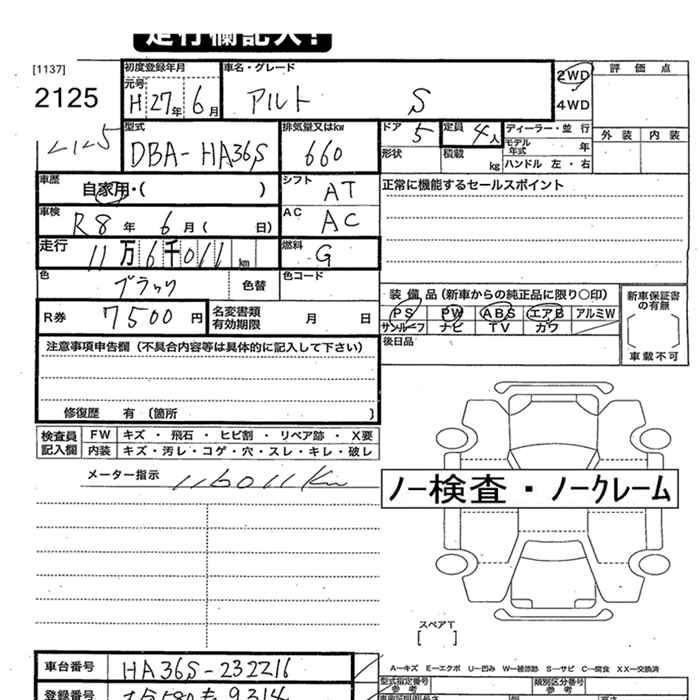 走行欄記入!
[1137]
2125
2125
初度登録年月
元号
H27年6月
車名・グレード
アルト S
2WD
4WD
評価点
外装 内装
型式
DBA-HA36S
排気量又はkw
660
ドア
5
定員
4人
形状
積載
kg
ディーラー・並行
モデル年式
年
ハンドル 左・右
車歴
自家用・( )
シフト
AT
正常に機能するセールスポイント
車検
R8年6月( 日)
AC
AC
走行
11万6千011km
燃料
G
色
ブラック
色替
色コード
装備品(新車からの純正品に限り○印)
PS PW ABS エアB アルミW
サンルーフ ナビ TV カワ
新車保証書の有無
車載不可
R券
7500円
名変書類有効期限
月 日
後日品
注意事項申告欄(不具合内容等は具体的に記入して下さい)
修復歴 有〔箇所 〕
検査員記入欄
FW キズ・飛石・ヒビ割・リペア跡・X要
内装 キズ・汚レ・コゲ・穴・スレ・キレ・破レ
メーター指示
116011Km
ノー検査・ノークレーム
スペアT
[ ]
車台番号
HA36S-232216
A-キズ E-エクボ U-凹み W-補修跡 S-サビ C-腐食 XX-交換済
型式指定番号
参考
類別区分番号
参考
登録番号